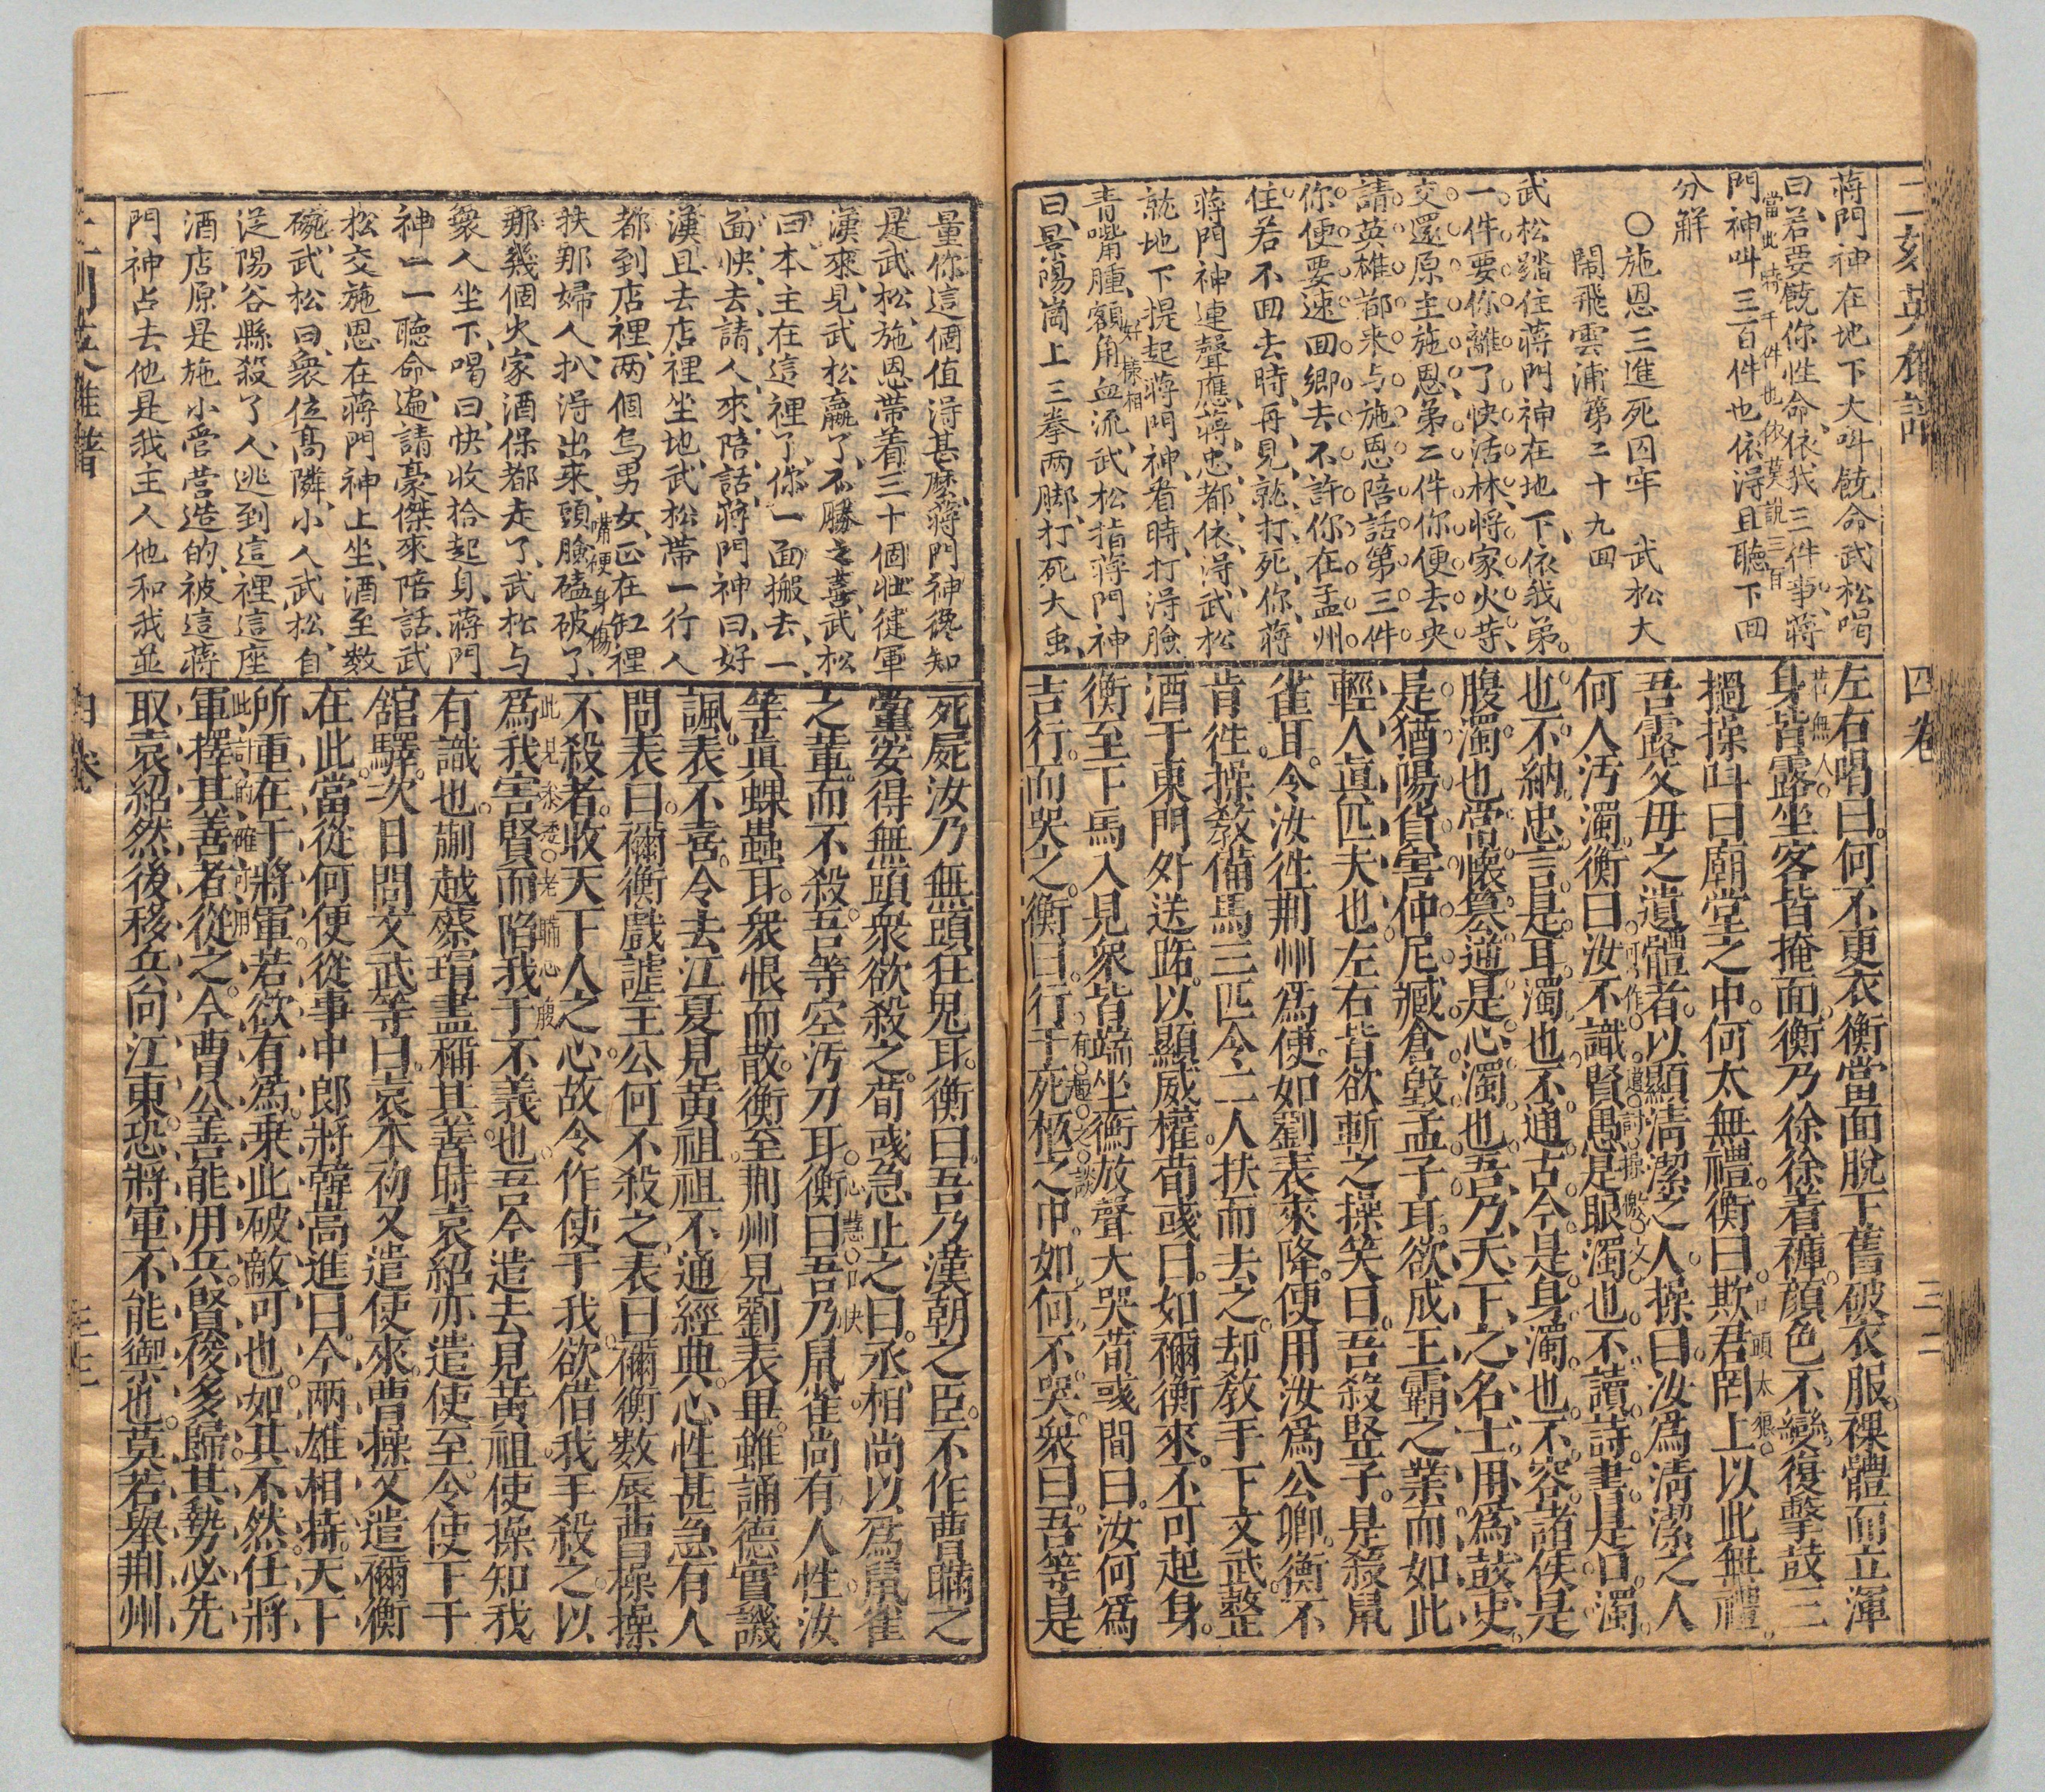 二刻英雄譜 四卷 三二
蔣門神在地下大叫饒命武松喝
曰、若要饒你性命依我三件事蔣
當此時千件也依莫說三百
門神叫三百件也依得且聽下回
分解
○施恩三進死囚牢 武松大
鬧飛雲浦第三十九回
武松踏住蔣門神在地下、依我弟
一件要你離了快活林、將家火等、
交還原主施恩、第二件你便去央
請英雄都来与施恩陪話第三件
你便要速回鄉去不許你在孟州
住若不回去時、再見、就打死你、蔣
蔣門神連聲應蔣忠都依得、武松
就地下提起蔣門神、看時、打得臉
青嘴腫、額角血流、武松指蔣門神
好樣相
曰、景陽崗上三拳两脚、打死大虫、
左右喝曰。何不更衣衡當面脫下舊破衣服。裸體而立渾
若無人
身皆露坐客皆掩面衡乃徐徐着褲。顏色不變。復擊鼓三
撾操叫曰廟堂之中。何太無禮。衡曰欺君罔上以此無禮。
口頭太狠
吾露父母之遺體者以顯清潔之人。操曰。汝爲清潔之人
可作遵討操檄文
何人污濁。衡曰汝不識賢愚是眼濁也不讀詩書是口濁
也不納忠言是耳濁也不通古今是身濁也不容諸侯是
腹濁也。常懷篡逆是心濁也吾乃天下之名士用爲鼓吏。
是猶陽貨害仲尼臧倉毀孟子耳。欲成王霸之業而如此
輕人真匹夫也左右皆欲斬之操笑曰。吾殺豎子。是殺鼠
雀耳。今汝徃荆州爲使。如劉表來降。便用汝爲公卿。衡不
肯徃。操敎備馬三匹令二人扶而去之。却敎手下文武整
酒于東門外送路。以顯威權荀彧曰。如禰衡來。不可起身。
衡至下馬入見衆皆端坐衡放聲大哭荀彧問曰。汝何爲
有趣之談
吉行。而哭之。衡曰。行于死柩之中。如何不哭。衆曰。吾等是
量你這個值得甚麽、蔣門神纔知
是武松、施恩帶着三十個壯健軍
漢來、見武松贏了、不勝之喜、武松
曰、本主在這裡了、你一面搬去、一
面快去、請人來陪話、蔣門神曰、好
漢且去店裡坐地、武松帶一行人
都到店裡、两個鳥男女、正在缸裡
扶那婦人扒得出來、頭臉磕破了、
嘴梗身傷
那幾個火家酒保都走了、武松与
衆人坐下、喝曰、快收拾起身、蔣門
神一一聽命、遍請豪傑來陪話、武
松交施恩在蔣門神上坐、酒至數
碗、武松曰、衆位高隣、小人武松、自
从陽谷縣殺了人、逃到這裡、這座
酒店、原是施小管营造的、被這蔣
門神占去、他是我主人、他和我並
死屍汝乃無頭狂鬼耳。衡曰吾乃漢朝之臣。不作曹瞞之
黨安得無頭衆欲殺之。荀彧急止之曰。丞相尚以爲鼠雀
之輩而不殺。吾等空污刀耳衡曰吾乃鼠雀尚有人性汝
心慧口快
等真蜾蟲耳。衆恨而散衡至荆州見劉表畢。雖誦德實譏
諷。表不喜。令去江夏見黄祖祖不通經典心性甚急有人
問表曰禰衡戲謔主公何不殺之。表曰禰衡數辱曹操操
不殺者。收天下人之心故令作使于我欲借我手殺之以
此見亦透老瞞心腹
爲我害賢而陷我于不義也吾今遣去見黄祖使操知我
有識也蒯越蔡瑁盡稱其善時袁紹亦遣使至令使下于
舘驛次日問文武等曰袁本初又遣使來曹操又遣禰衡
在此當從何便從事中郎將韓嵩進曰。今两雄相持。天下
所重在于將軍。若欲有爲乘此破敵可也。如其不然任將
此計的確可用
軍擇其善者從之。今曹公善能用兵。賢俊多歸其勢必先
取袁紹然後移兵向江東。恐將軍不能禦也莫若舉荆州
二刻英雄譜 四卷 三二